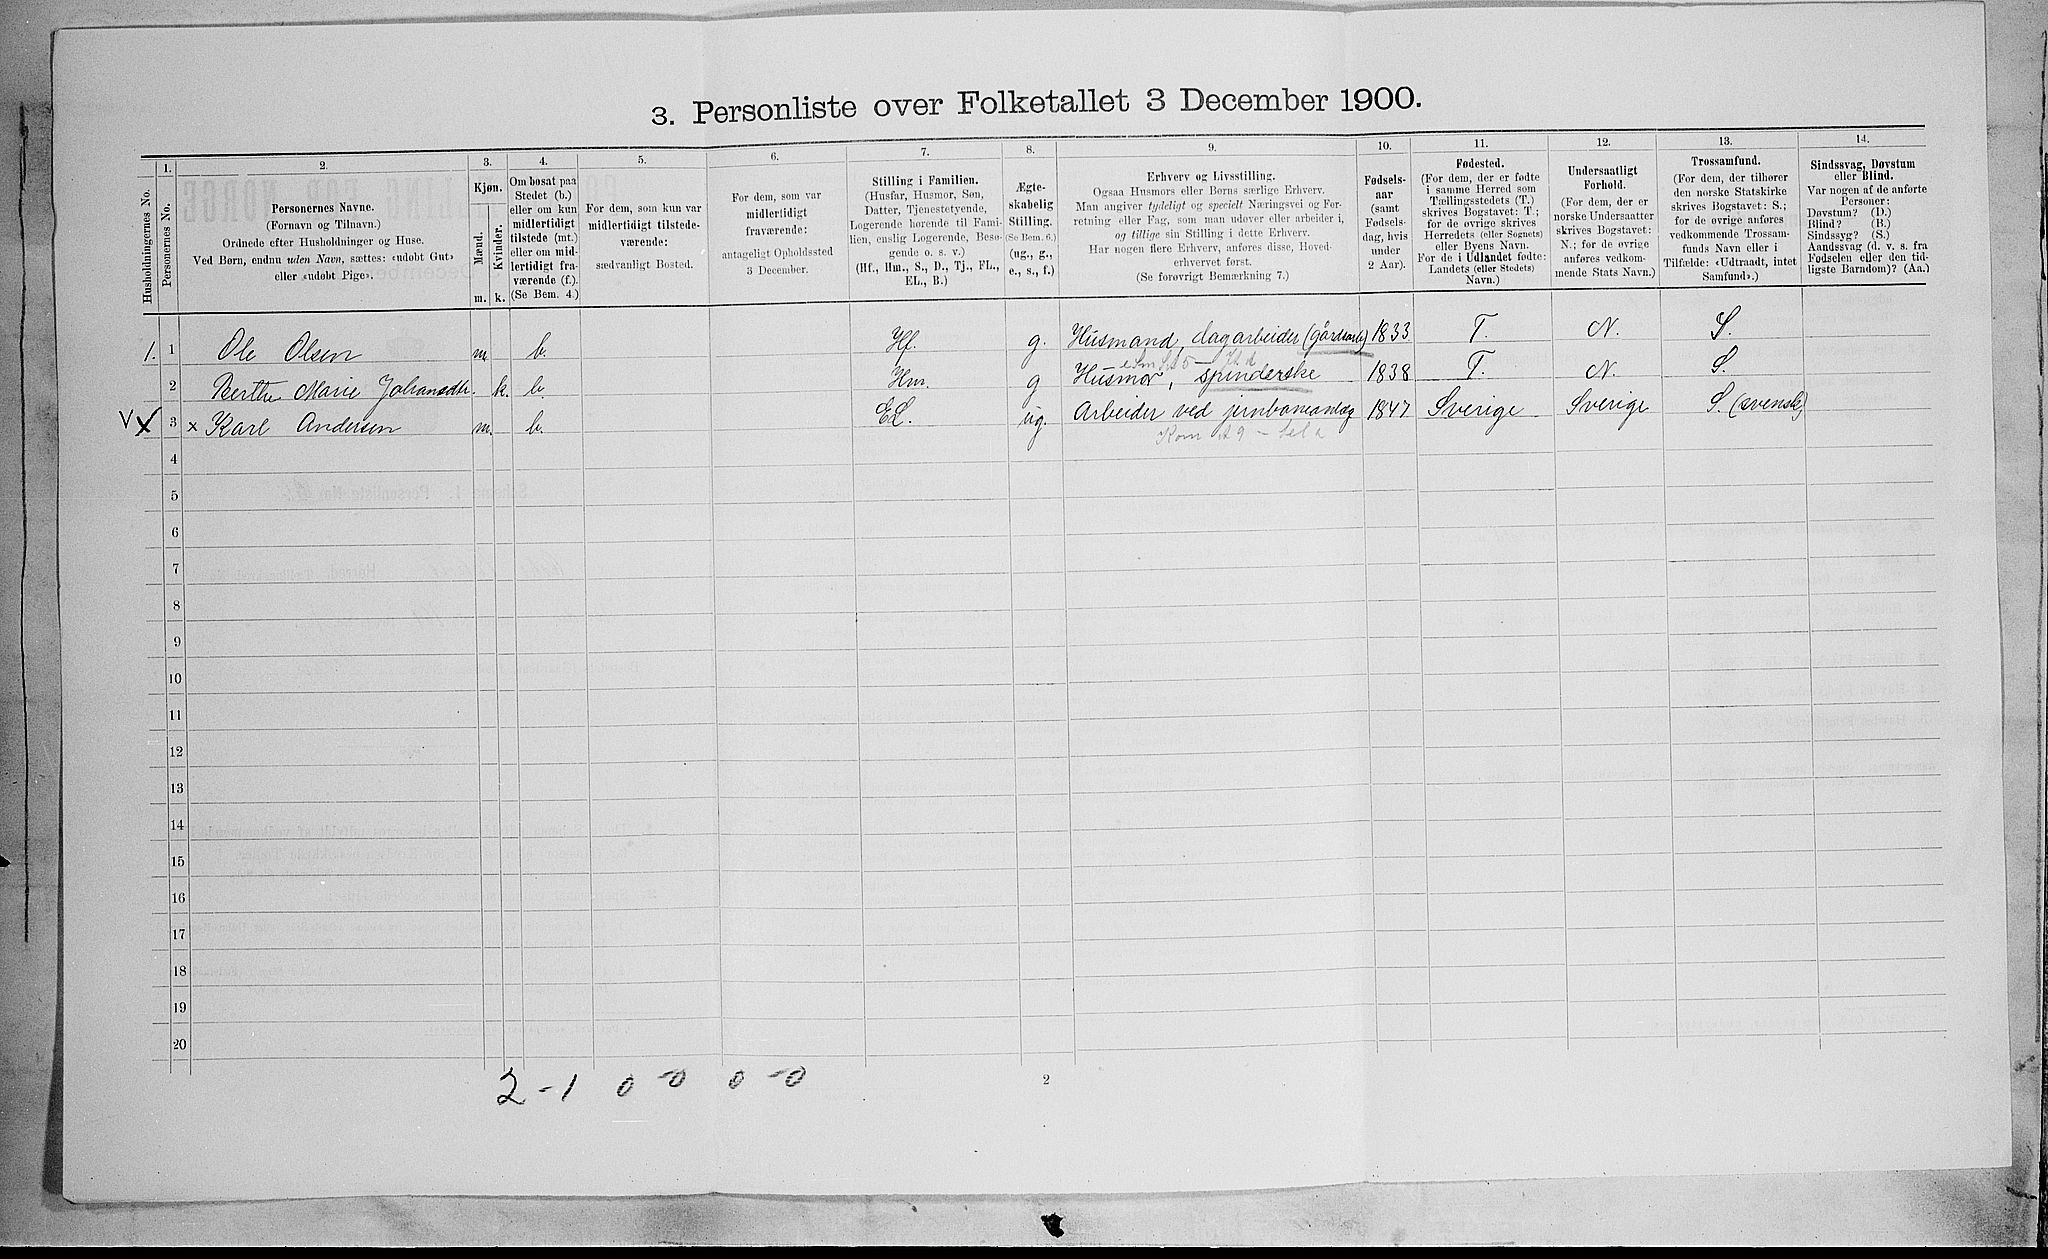 3. Personliste over Folketallet 3 December 1900.
1. 2. 3. 4. 5. 6. 7. 8. 9. 10. 11. 12. 13. 14.
Husholdningernes No.
Personernes No.
Personernes Navne.
(Fornavn og Tilnavn.)
Ordnede efter Husholdninger og Huse.
Ved Børn, endnu uden Navn, sættes: «udøbt Gut»
eller «udøbt Pige».
Kjøn.
Mænd.
Kvinder.
m. k.
Om bosat paa
Stedet (b.)
eller om kun
midlertidigt
tilstede (mt.)
eller om mid-
lertidigt fra-
værende (f.).
(Se Bem. 4.)
For dem, som kun var
midlertidigt tilstede-
værende:
sædvanligt Bosted.
For dem, som var
midlertidigt
fraværende:
antageligt Opholdssted
3 December.
Stilling i Familien.
(Husfar, Husmor, Søn,
Datter, Tjenestetyende,
Logerende hørende til Fami-
lien, enslig Logerende, Besø-
gende o. s. v.)
(Hf., Hm., S., D., Tj., FL.,
EL., B.)
Ægte-
skabelig
Stilling.
(Se Bem. 6.)
(ug., g.,
e., s., f.)
Erhverv og Livsstilling.
Ogsaa Husmors eller Børns særlige Erhverv.
Man angiver tydeligt og specielt Næringsvei og For-
retning eller Fag, som man udøver eller arbeider i,
og tillige sin Stilling i dette Erhverv.
Har nogen flere Erhverv, anføres disse, Hoved-
erhvervet først.
(Se forøvrigt Bemærkning 7.)
Fødsels-
aar
(samt
Fødsels-
dag, hvis
under
2 Aar).
Fødested.
(For dem, der er fødte
i samme Herred som
Tællingsstedets (T.)
skrives Bogstavet: T.;
for de øvrige skrives
Herredets (eller Sognets)
eller Byens Navn.
For de i Udlandet fødte:
Landets (eller Stedets)
Navn.)
Undersaatligt
Forhold.
(For dem, der er
norske Undersaatter
skrives Bogstavet:
N.; for de øvrige
anføres vedkom-
mende Stats Navn.)
Trossamfund.
(For dem, der tilhører
den norske Statskirke
skrives Bogstavet: S.;
for de øvrige anføres
vedkommende Trossam-
funds Navn eller i
Tilfælde: «Udtraadt, intet
Samfund».)
Sindssvag, Døvstum
eller Blind.
Var nogen af de anførte
Personer:
Døvstum? (D.)
Blind? (B.)
Sindssyg? (S.)
Aandssvag (d. v. s. fra
Fødselen eller den tid-
ligste Barndom)? (Aa.)
1. 1 Ole Olsen m. b. Hf. g. Husmand, dagarbeider (gårdsarb) 1833 T. N. S.
2 Berthe Marie Johansdtr. k. b. Hm. g Husmor, spinderske 1838 T. N. S.
V X 3 x Karl Andersen m. b. EL. ug. Arbeider ved jernbaneanlæg 1847 Sverige Sverige S. (svensk)
4
5
6
7
8
9
10
11
12
13
14
15
16
17
18
19
20
2 - 1 0 - 0 0 - 0
2